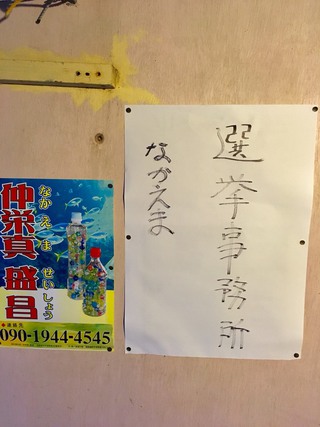 選挙事務所
ながえま
仲栄真 盛昌
なかえま せいしょう
●連絡先
090-1944-4545